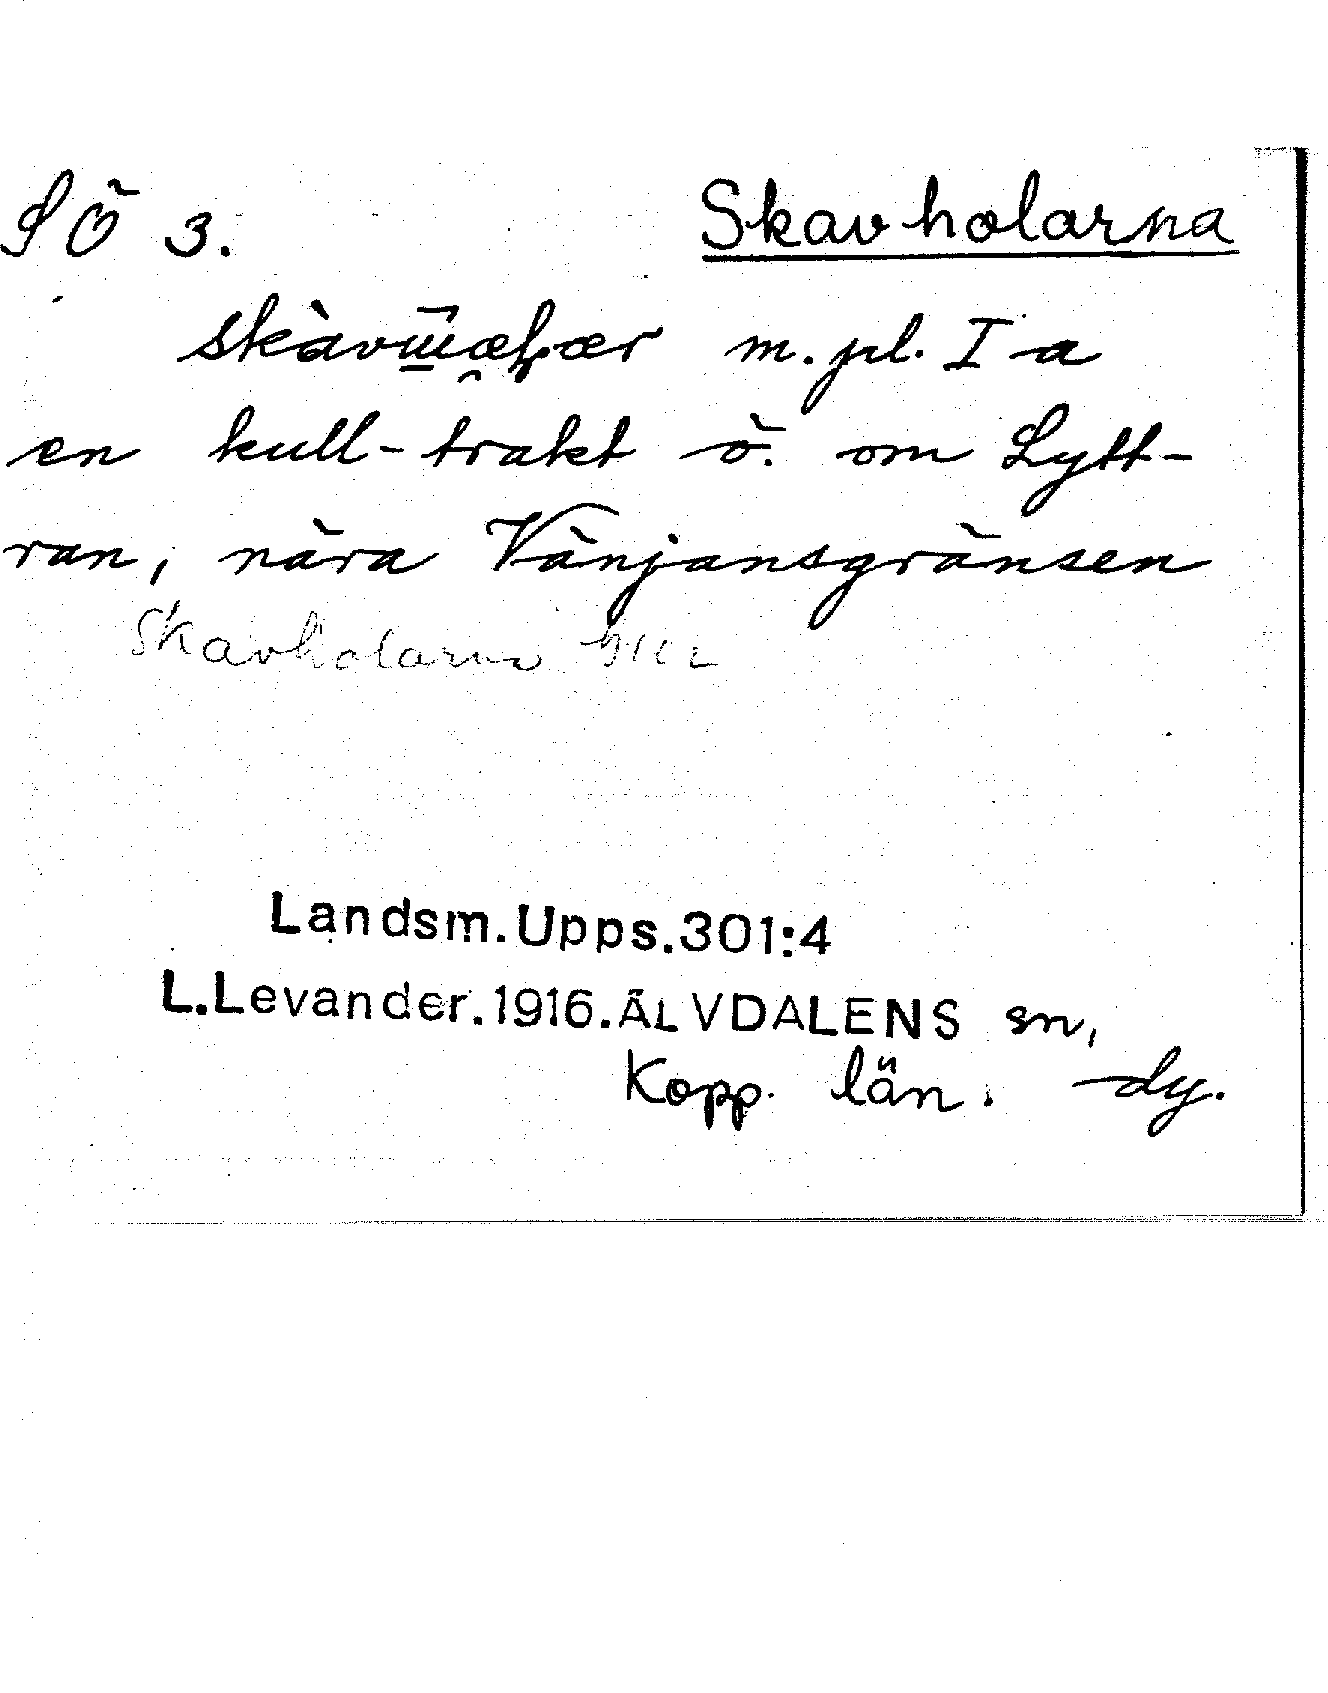 SÖ 3. Skavholarna
m.pl. I a
en kull-trakt ö. om Lytt-
ran, nära Vänjansgränsen
Skavholarna
Landsm.Upps.301:4
L.Levander.1916.ÄLVDALENS sn,
Kopp. län. dy.